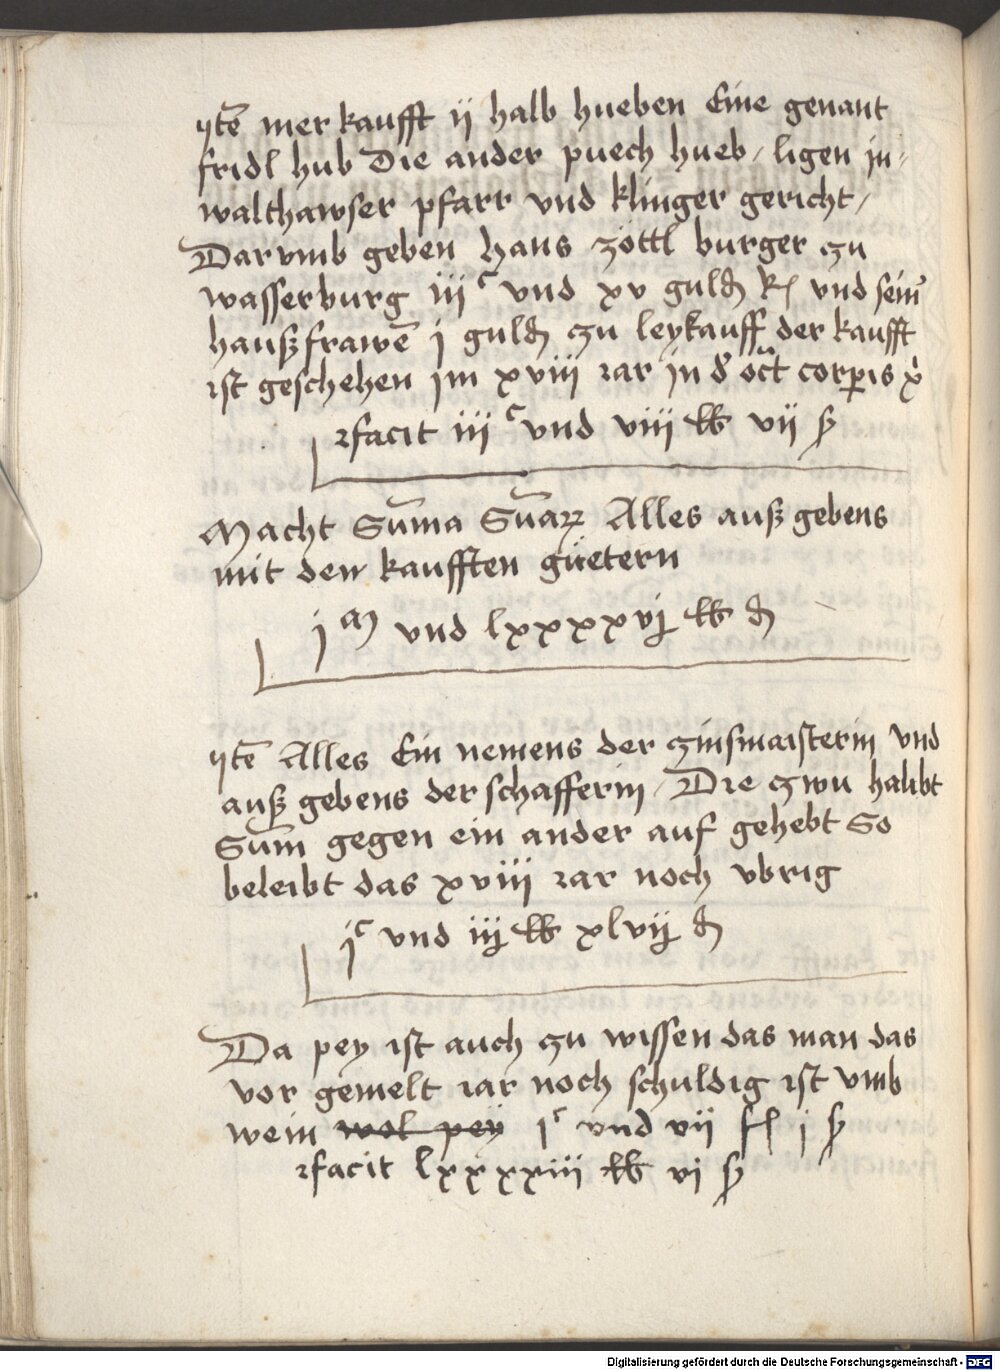 Itē mer kaufft ij halb hueben Eine genant
fridl hub Die ander puech hueb / ligen in-
walthawser pfarr vnd klinger gericht /
Darvmb geben hans zöttl burger zu
wasserburg iijᶜ vnd xv guldn̄ vnd sein̄
haußfrawē j guldn̄ zu leykauff der kaufft
ist geschehen im xviii iar in d' oct̄ corpis
facit iijᶜ vnd viii ℔ vij ß
Macht Sūma Sūaꝝ Alles auß gebens
mit den kaufften güetern
jᴹ vnd lxxxxvj ℔ ₰
Itē Alles Ein nemens der zinsmaisterin vnd
auß gebens der schafferin / Die zwu halbt
Sum̄ gegen ein ander auf gehebt So
beleibt das xviii iar noch vbrig
jᶜ vnd iij ℔ xlvij ₰
Da pey ist auch zu wissen das man das
vor gemelt iar noch schuldig ist vmb
wein wol pey jᶜ vnd vij fl j ß
facit lxxxxiii ℔ vj ß
Digitalisierung gefördert durch die Deutsche Forschungsgemeinschaft - DFG